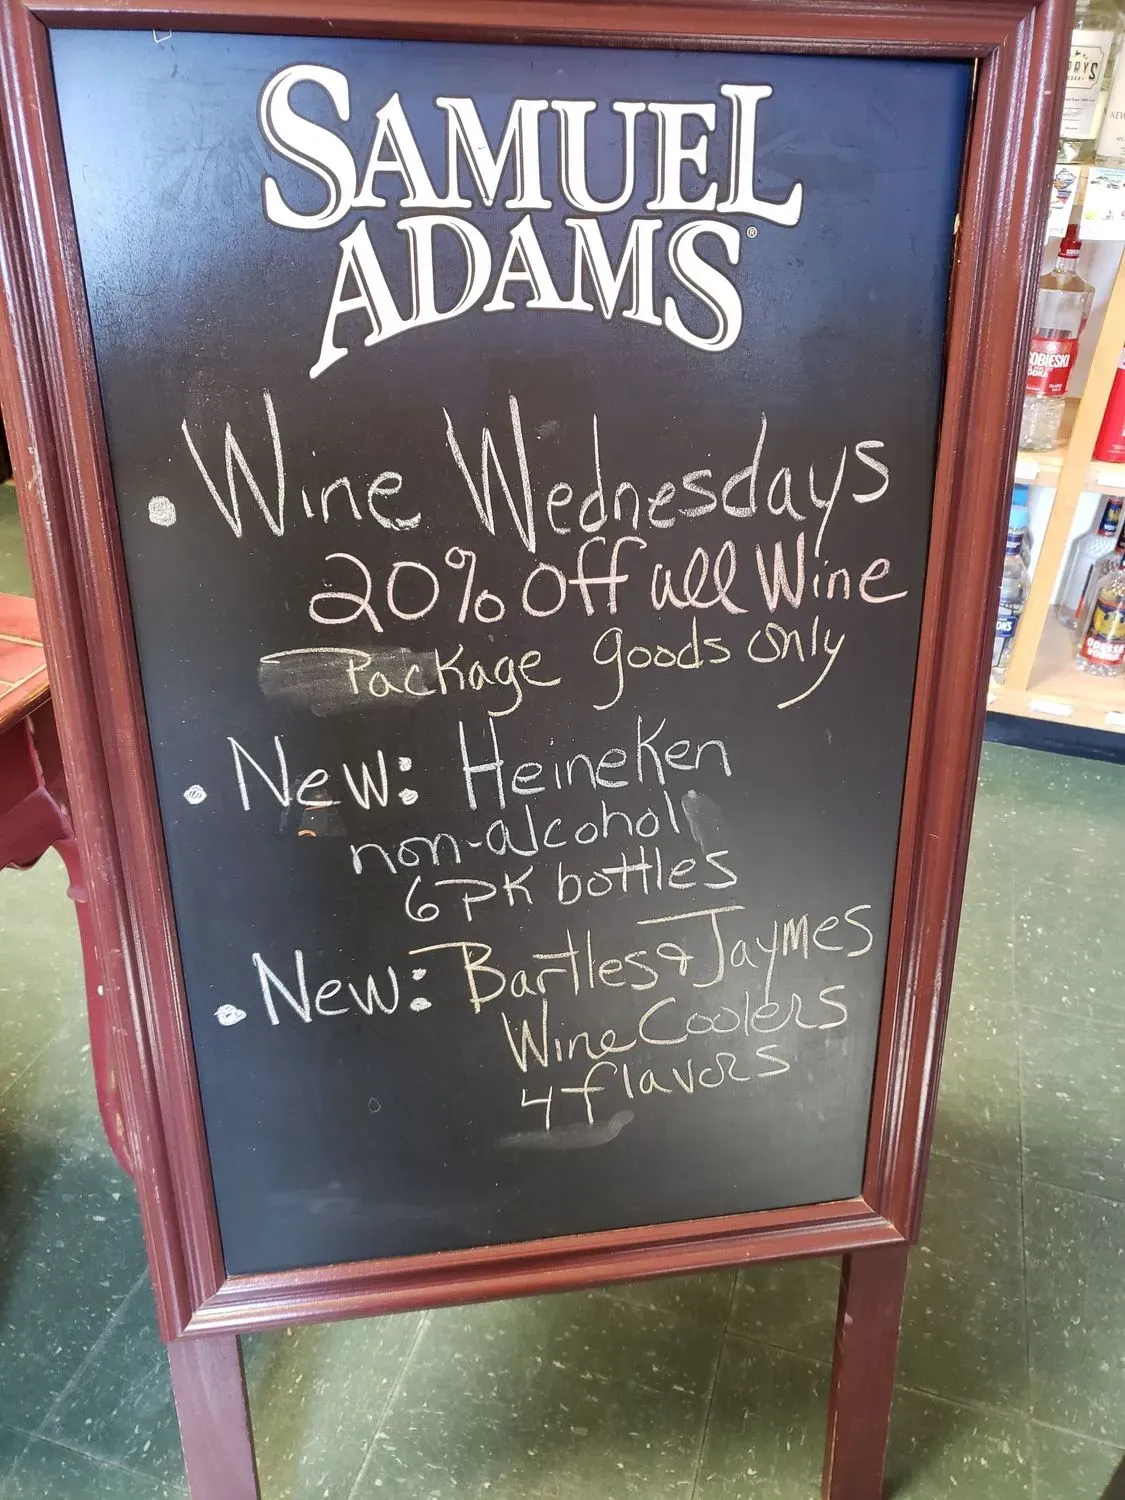 SAMUEL
ADAMS®
• Wine Wednesdays
20% off all Wine
Package goods only
• New: Heineken
non-alcohol
6 PK bottles
• New: Bartles & Jaymes
Wine Coolers
4 flavors
SOBIESKI
VODKA